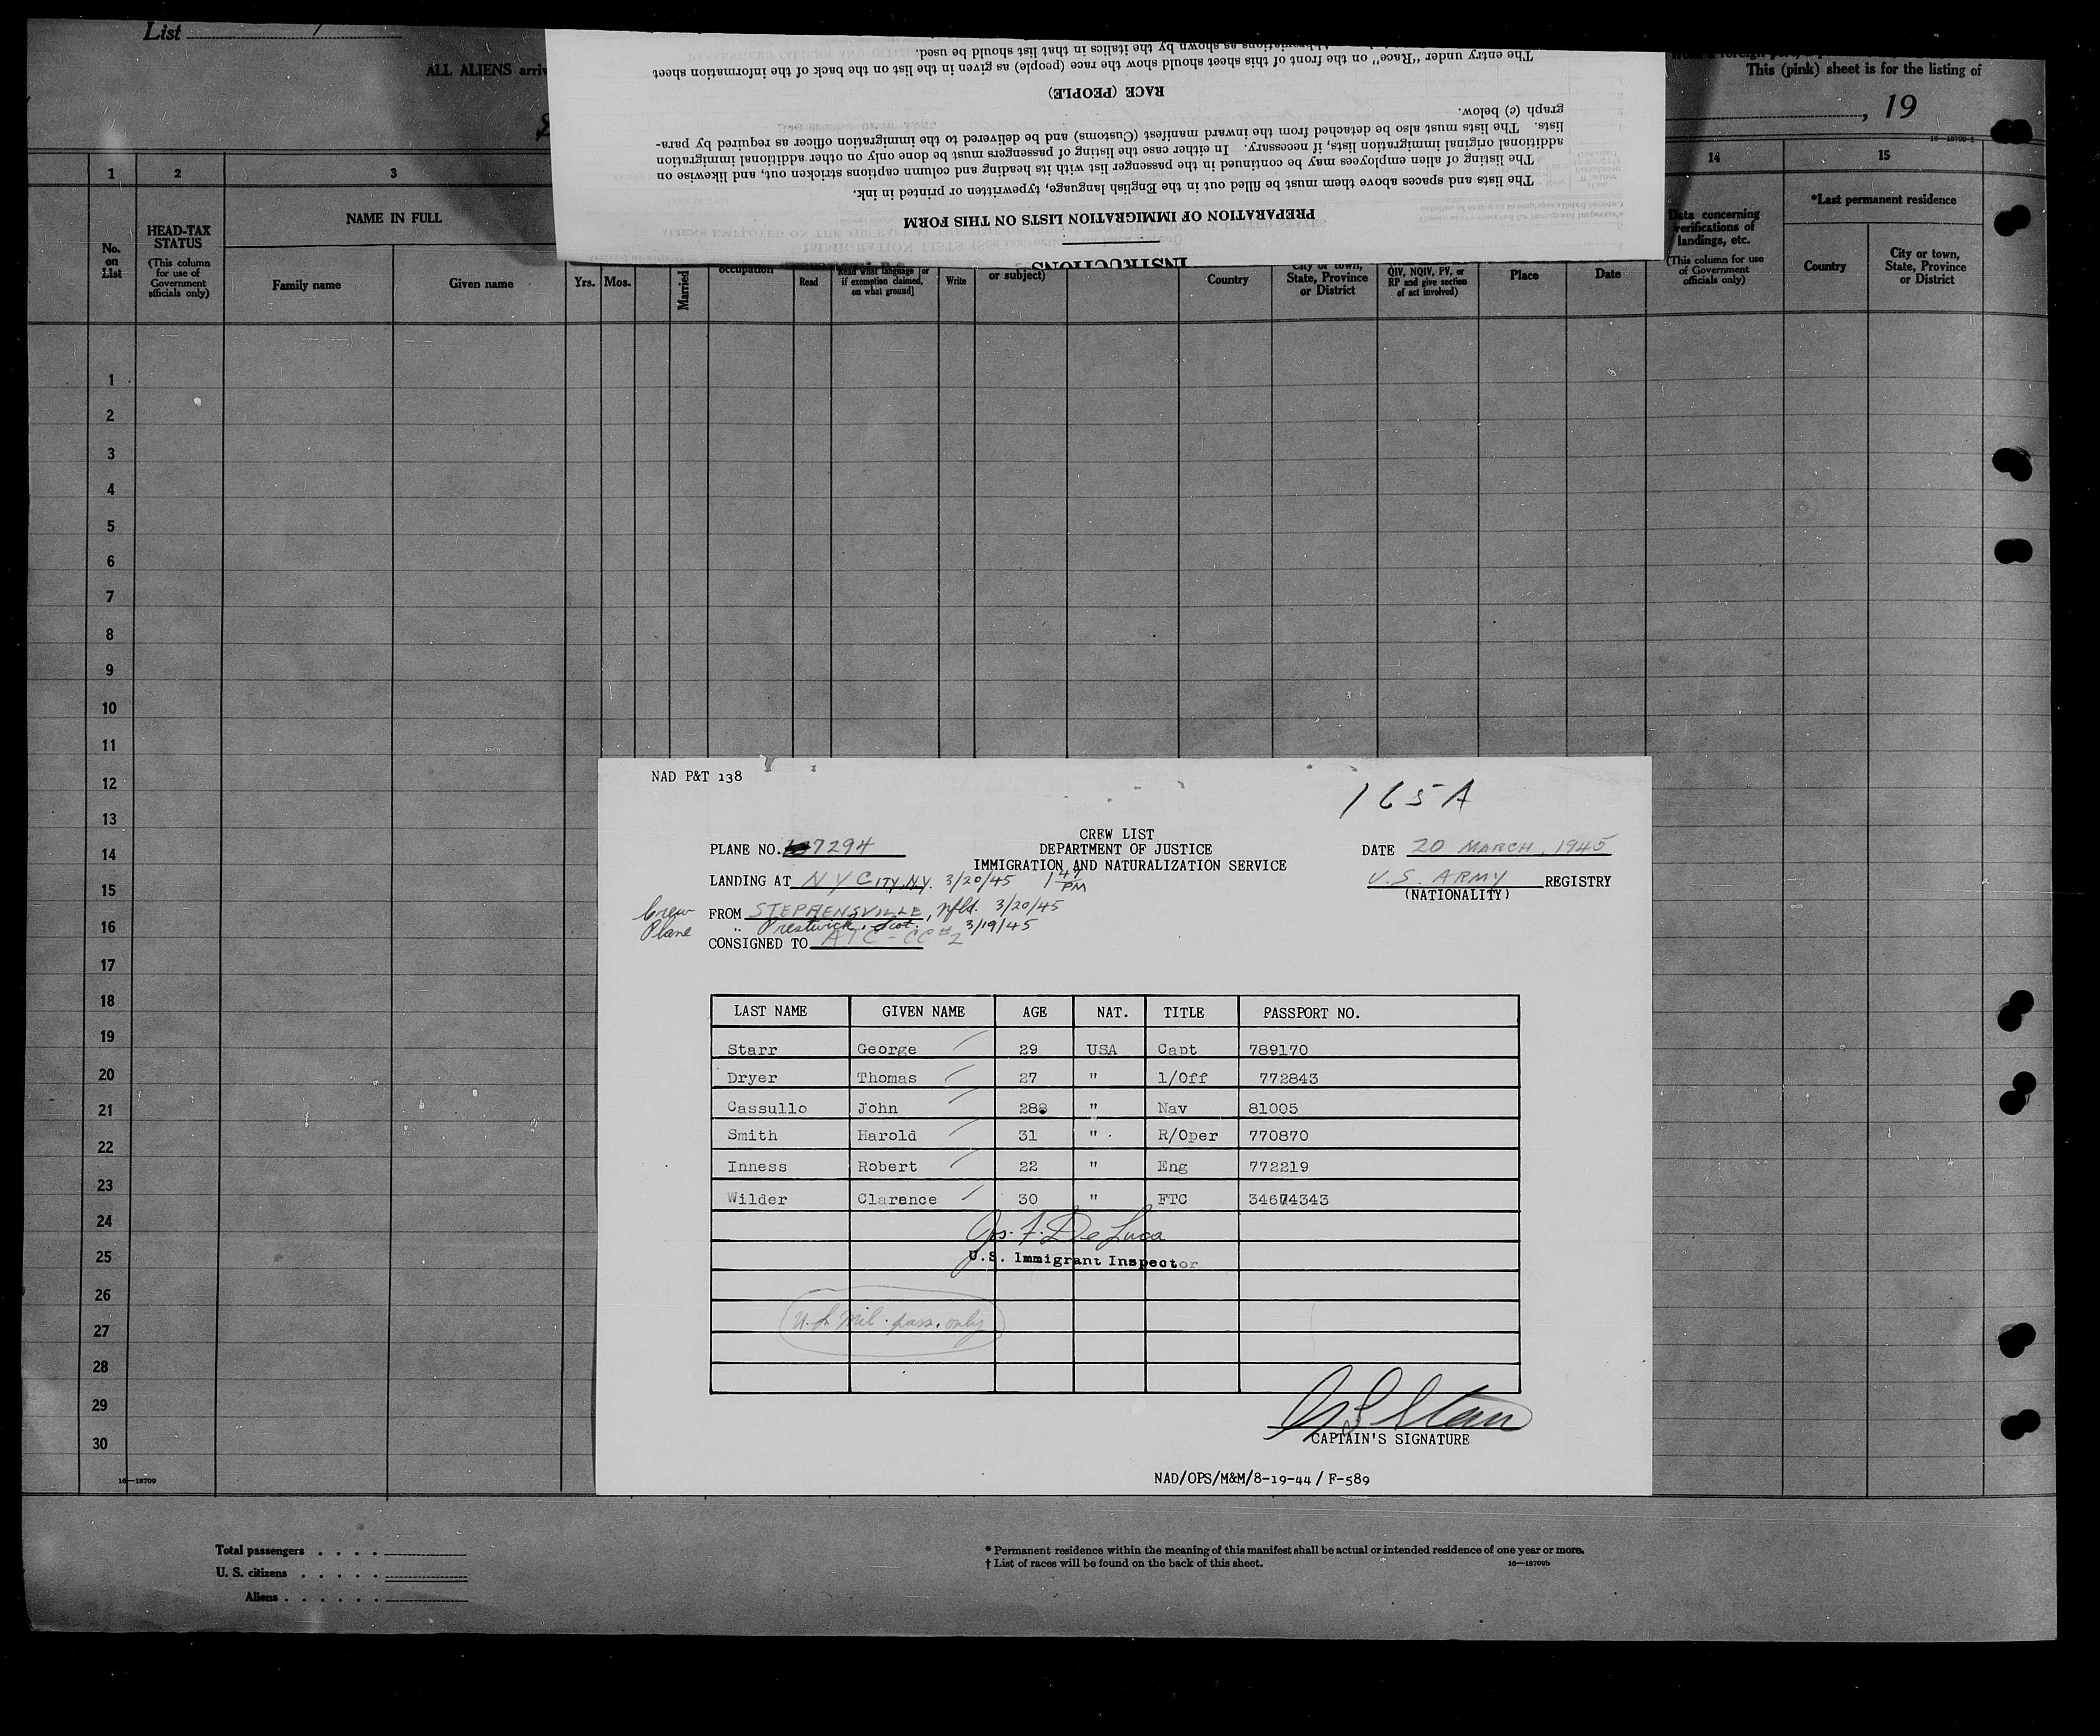 List
ALL ALIENS arriv
This (pink) sheet is for the listing of
, 19
INSTRUCTIONS
PREPARATION OF IMMIGRATION LISTS ON THIS FORM
The lists and spaces above them must be filled out in the English language, typewritten or printed in ink.
The listing of alien employees may be continued in the passenger list with its heading and column captions stricken out, and likewise on
additional original immigration lists, if necessary. In either case the listing of passengers must be done only on other additional immigration
lists. The lists must also be detached from the inward manifest (Customs) and be delivered to the immigration officer as required by para-
graph (c) below.
RACE (PEOPLE)
The entry under "Race" on the front of this sheet should show the race (people) as given in the list on the back of the information sheet
Abbreviations as shown by the italics in that list should be used.
1 2 3 14 15
No. on List
HEAD-TAX STATUS
(This column for use of Government officials only)
NAME IN FULL
Family name Given name
Yrs. Mos.
Married
occupation
Read
Read what language [or if exemption claimed, on what ground]
Write
or subject)
Country
City or town, State, Province or District
QIV, NQIV, PV, or RP and give section of act involved)
Place
Date
Data concerning verifications of landings, etc.
(This column for use of Government officials only)
*Last permanent residence
Country
City or town, State, Province or District
1
2
3
4
5
6
7
8
9
10
11
12
13
14
15
16
17
18
19
20
21
22
23
24
25
26
27
28
29
30
16—18709
NAD P&T 138
165A
CREW LIST
PLANE NO. 7294 DEPARTMENT OF JUSTICE DATE 20 MARCH, 1945
IMMIGRATION AND NATURALIZATION SERVICE
LANDING AT NYCITY, N.Y. 3/20/45 1 47 PM U.S. ARMY REGISTRY
(NATIONALITY)
Crew FROM STEPHENSVILLE, Nfld. 3/20/45
Plane " Prestwick, Scot. 3/19/45
CONSIGNED TO ATC - CC #2
LAST NAME GIVEN NAME AGE NAT. TITLE PASSPORT NO.
Starr George 29 USA Capt 789170
Dryer Thomas 27 " 1/Off 772843
Cassullo John 28 " Nav 81005
Smith Harold 31 " R/Oper 770870
Inness Robert 22 " Eng 772219
Wilder Clarence 30 " FTC 34674343
Jos. F. De Luca
U.S. Immigrant Inspector
U.S. Mil. pass. only
CAPTAIN'S SIGNATURE
NAD/OPS/M&M/8-19-44 / F-589
Total passengers
U. S. citizens
Aliens
* Permanent residence within the meaning of this manifest shall be actual or intended residence of one year or more.
† List of races will be found on the back of this sheet.
16—18709b